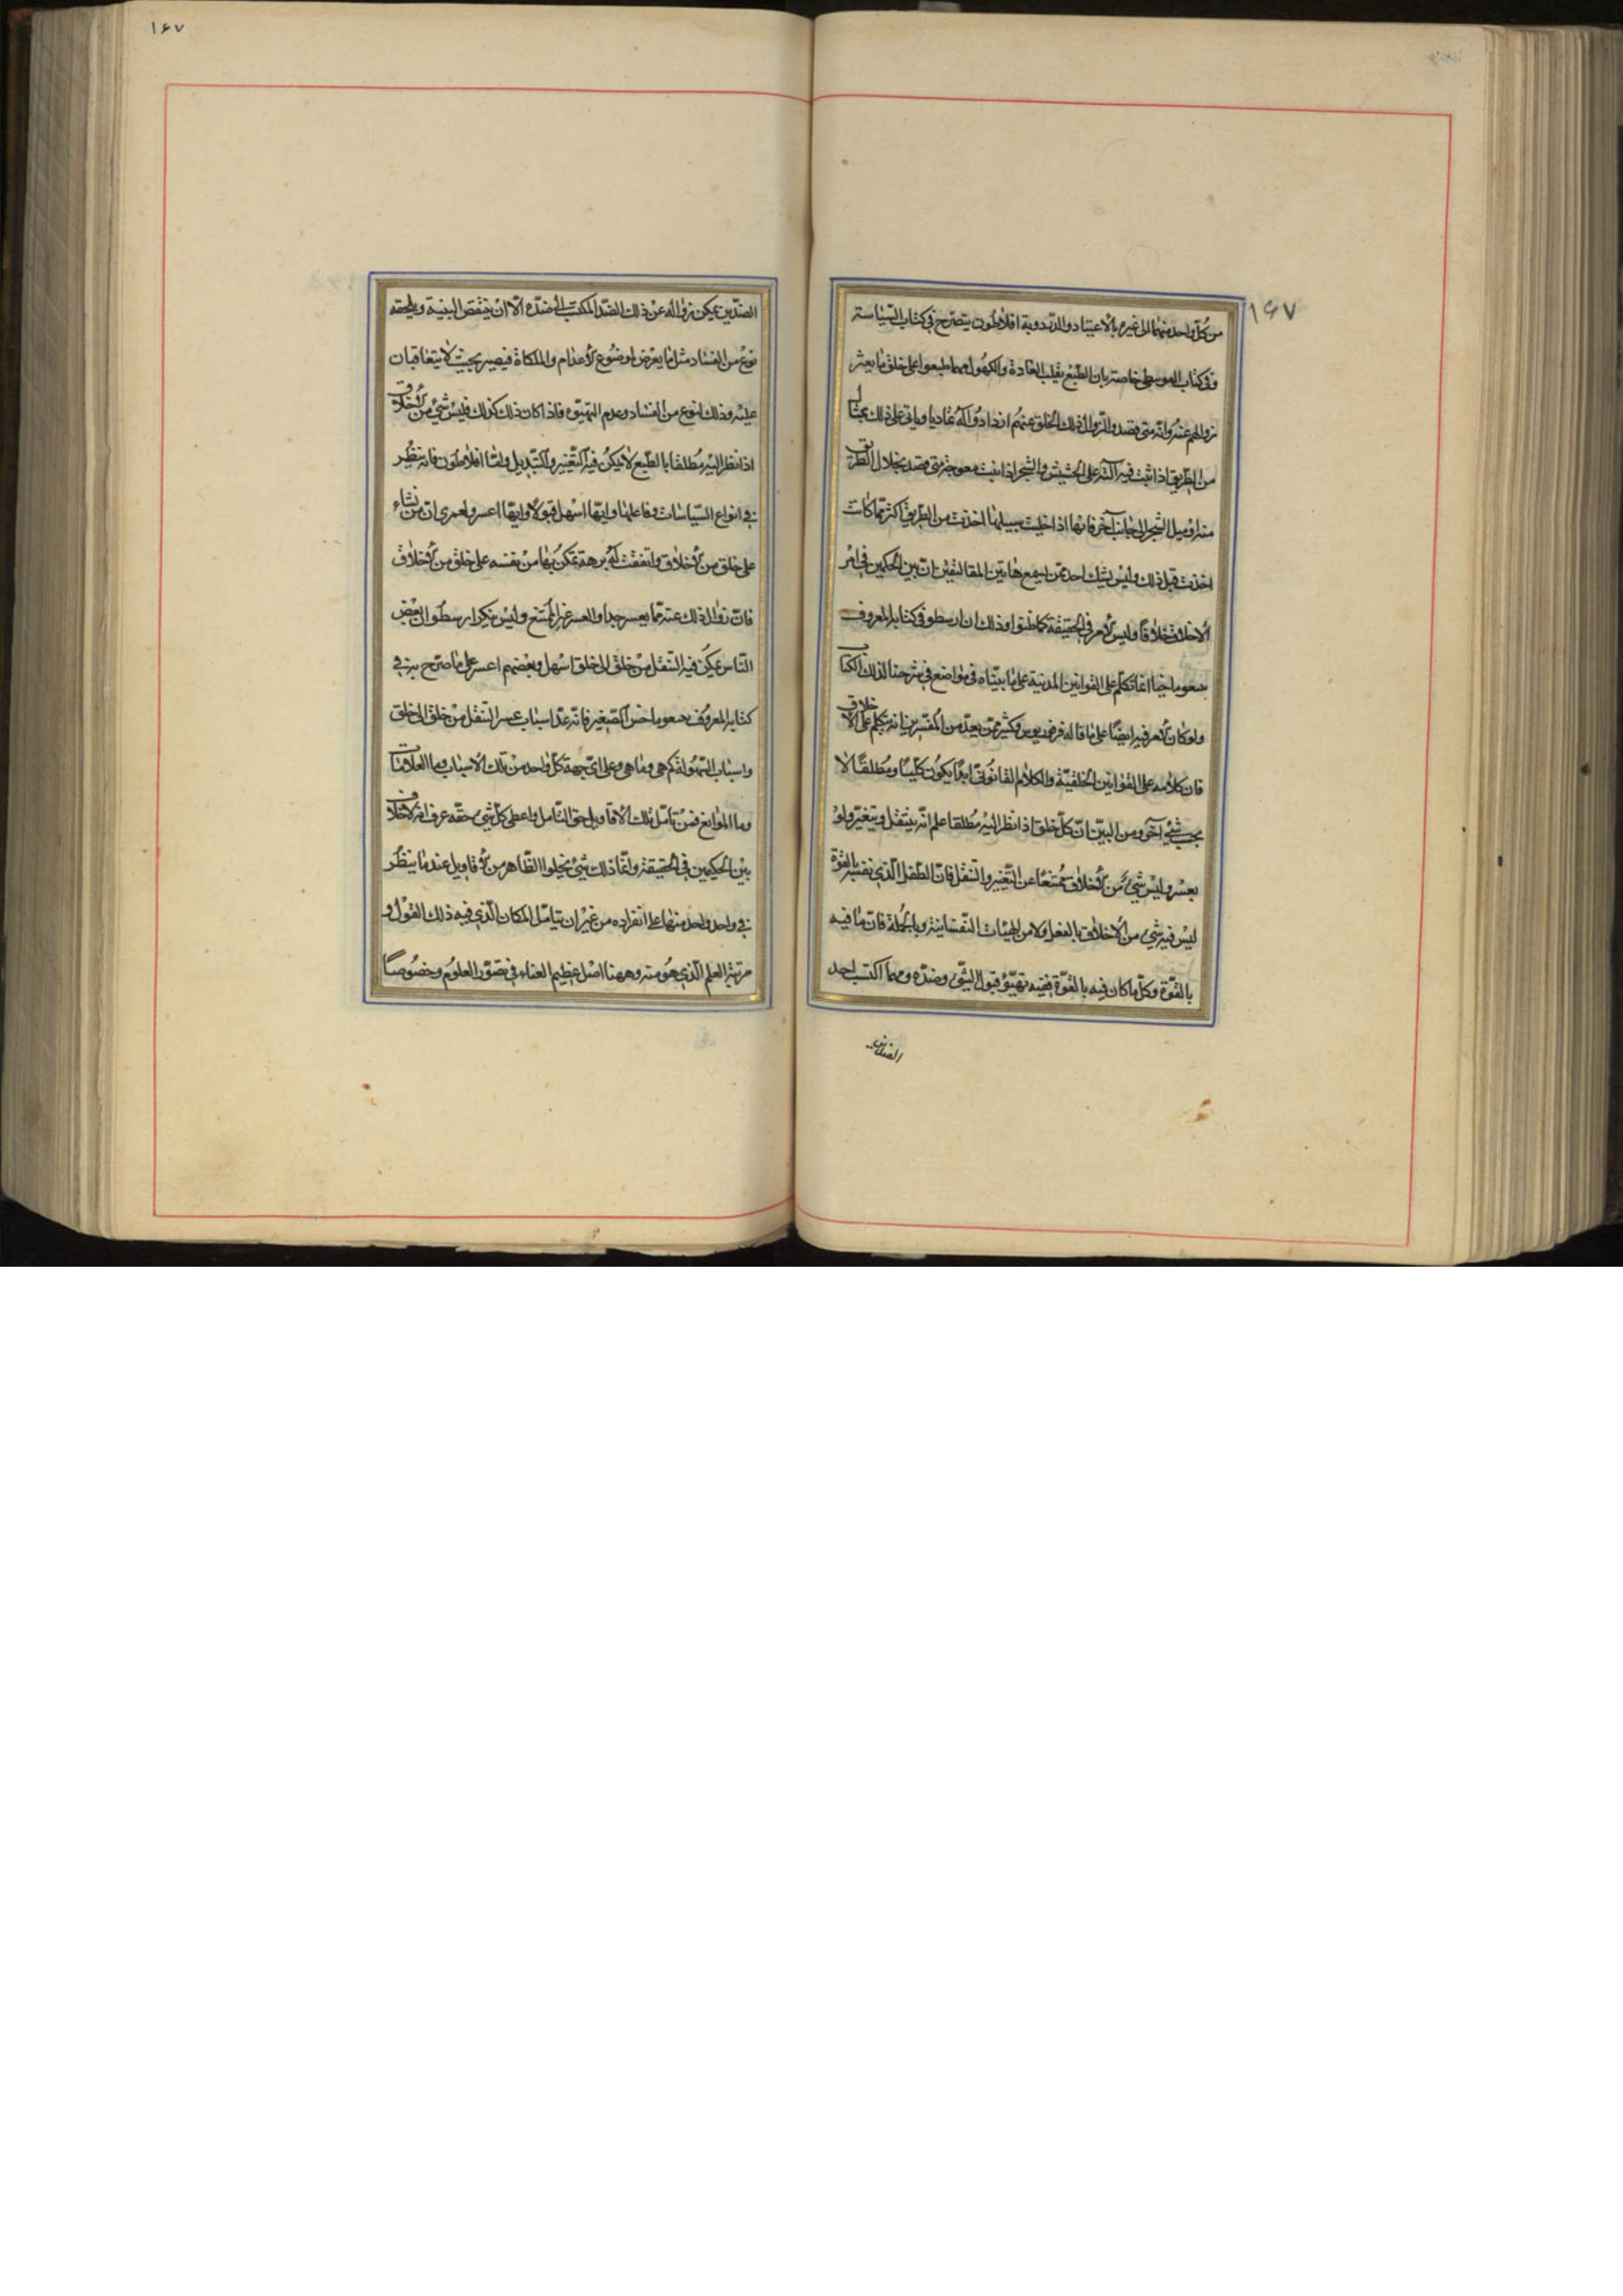 ۱۶۷
من كلّ واحد منهما الى غيره بالاعتياد والدّربة وافلاطون يتصرّح فى كتاب السّياسة
وفى كتاب خاصة بان الطّبع يغلب العادة والكهول مهما طبعوا على خلق ما يعسر
زوالهم عنه وانّه متى قصدوا لزوال ذلك الخلق عنهم ازدادوا له تماديا وياتى على ذلك بمثال
من الطّريق اذا نبت فيه الشّجر على الحشيش والشّجر اذا نبت معوجة متى قصد بخلال الطّريق
منه او ميل الشّجر الى جانب آخر فانها اذا خليت سبيلها اخذت من الطّريق اكثر ممّا كانت
اخذت قبل ذلك وليس يشك احد ممّن يسمع هاتين المقالتين انّ بين الحكيمين فى امر
الاخلاق خلافا وليس الامر فى الحقيقة كما ظنوا وذلك ان ارسطو فى كتابه المعروف
بنيقوماخيا انما تكلّم على القوانين المدنية على ما بيّناه فى مواضع فى شرحنا لذلك الكتاب
ولو كان الامر فيه ايضا على ما قاله فرفوريوس وكثير ممّن بعد من المفسّرين انه تكلم على الاخلاق
فان كلامه على القوانين الخلقيّة والكلام القانونى ابدا يكون كلّيا ومطلقا لا
بحسب شئ آخر ومن البيّن انّ كلّ خلق اذا نظر اليه مطلقا علم انّه ينتقل ويتغيّر ولو
بعسر وليس شئ من الاخلاق ممتنعا عن التّغيير والتنقل فانّ الطّفل الّذى نفسه بالقوّة
ليس فيه شئ من الاخلاق بالفعل ولا من الهيئات النّفسانية وبالجملة فانّ ما فيه
بالقوّة وكلّ ما كان فيه بالقوّة ففيه تهيّؤ قبول الشّئ وضدّه ومهما اكتسب احد
الضدّين
۱۶۷
الضدّين يمكن زواله عن ذلك الضدّ المكتسب الى ضدّه الّا ان ينتقض البنية ويلحقه
نوع من الفساد مثل ما يعرض لموضوع الاعدام والملكات فيصير بحيث لا يتعاقبان
عليه وذلك نوع من الفساد وعدم التهيّؤ فاذا كان ذلك كذلك فليس شئ من الاخلاق
اذا نظر اليه مطلقا بالطّبع لا يمكن فيه التّغيير والتّبديل وامّا افلاطون فانه ينظر
فى انواع السّياسات وايّها اسهل قبولا وايّها اعسر ولعمرى ان من نشاء
على خلق من الاخلاق واتفقت له برهة تمكن بها من نفسه على خلق من الاخلاق
فانّ زوال ذلك عنه ممّا يعسر جدا والعسر غير الممتنع وليس ينكر ارسطو ان بعض
النّاس يمكن فيه التنقل من خلق الى خلق اسهل وبعضهم اعسر على ما صرّح به فى
كتابه المعروف بنيقوماخس الصّغير فانّه عدّ اسباب عسر التنقل من خلق الى خلق
واسباب السّهولة كم هى وما هى وعلى اىّ جهة كلّ واحد من تلك الاسباب وما العلامات
وما الموانع فمن تأمّل تلك الاقاويل حق التّأمل واعطى كلّ شئ حقّه عرف انه لا خلاف
بين الحكيمين فى الحقيقة وانّما ذلك شئ يخيلوا الظّاهر من الاقاويل عندما ينظر
فى واحد واحد منها على انفراده من غير ان يتأمّل المكان الّذى فيه ذلك القول و
مرتبة العلم الّذى هو منه وههنا اصل عظيم العناء فى تصوّر العلوم وخصوصا